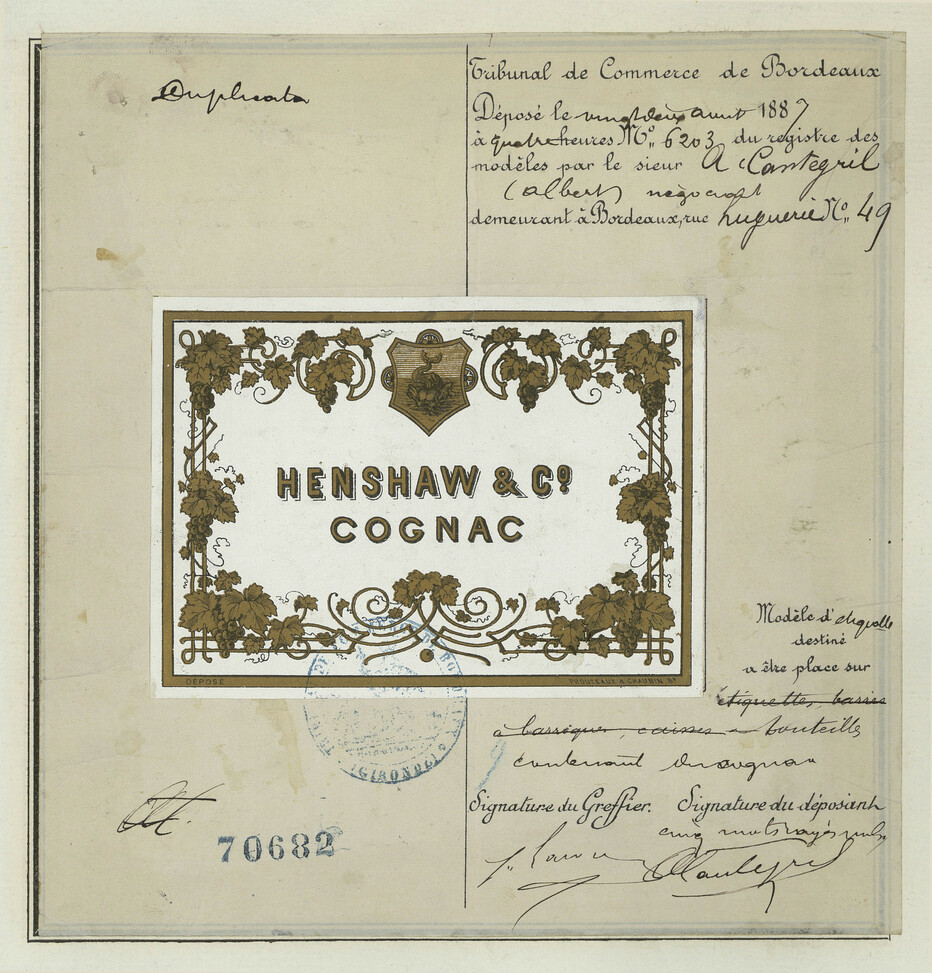 Duplicata
Tribunal de Commerce de Bordeaux
Déposé le vingt deux avril 1887
à quatre heures No. 6203 du registre des
modèles par le sieur A Cantegril
(Albert) négociant
demeurant à Bordeaux, rue huguerie No. 49
HENSHAW & Co.
COGNAC
DÉPOSÉ
PROUTEAUX & CHAUBIN, Bx
Modèle d'etiquette
destiné
a être place sur
étiquettes, barris
à barriques, caisses a bouteille
contenant du cognac
(GIRONDE)
Signature du Greffier. Signature du déposant
cinq mots rayés nuls
70682
ACantegril